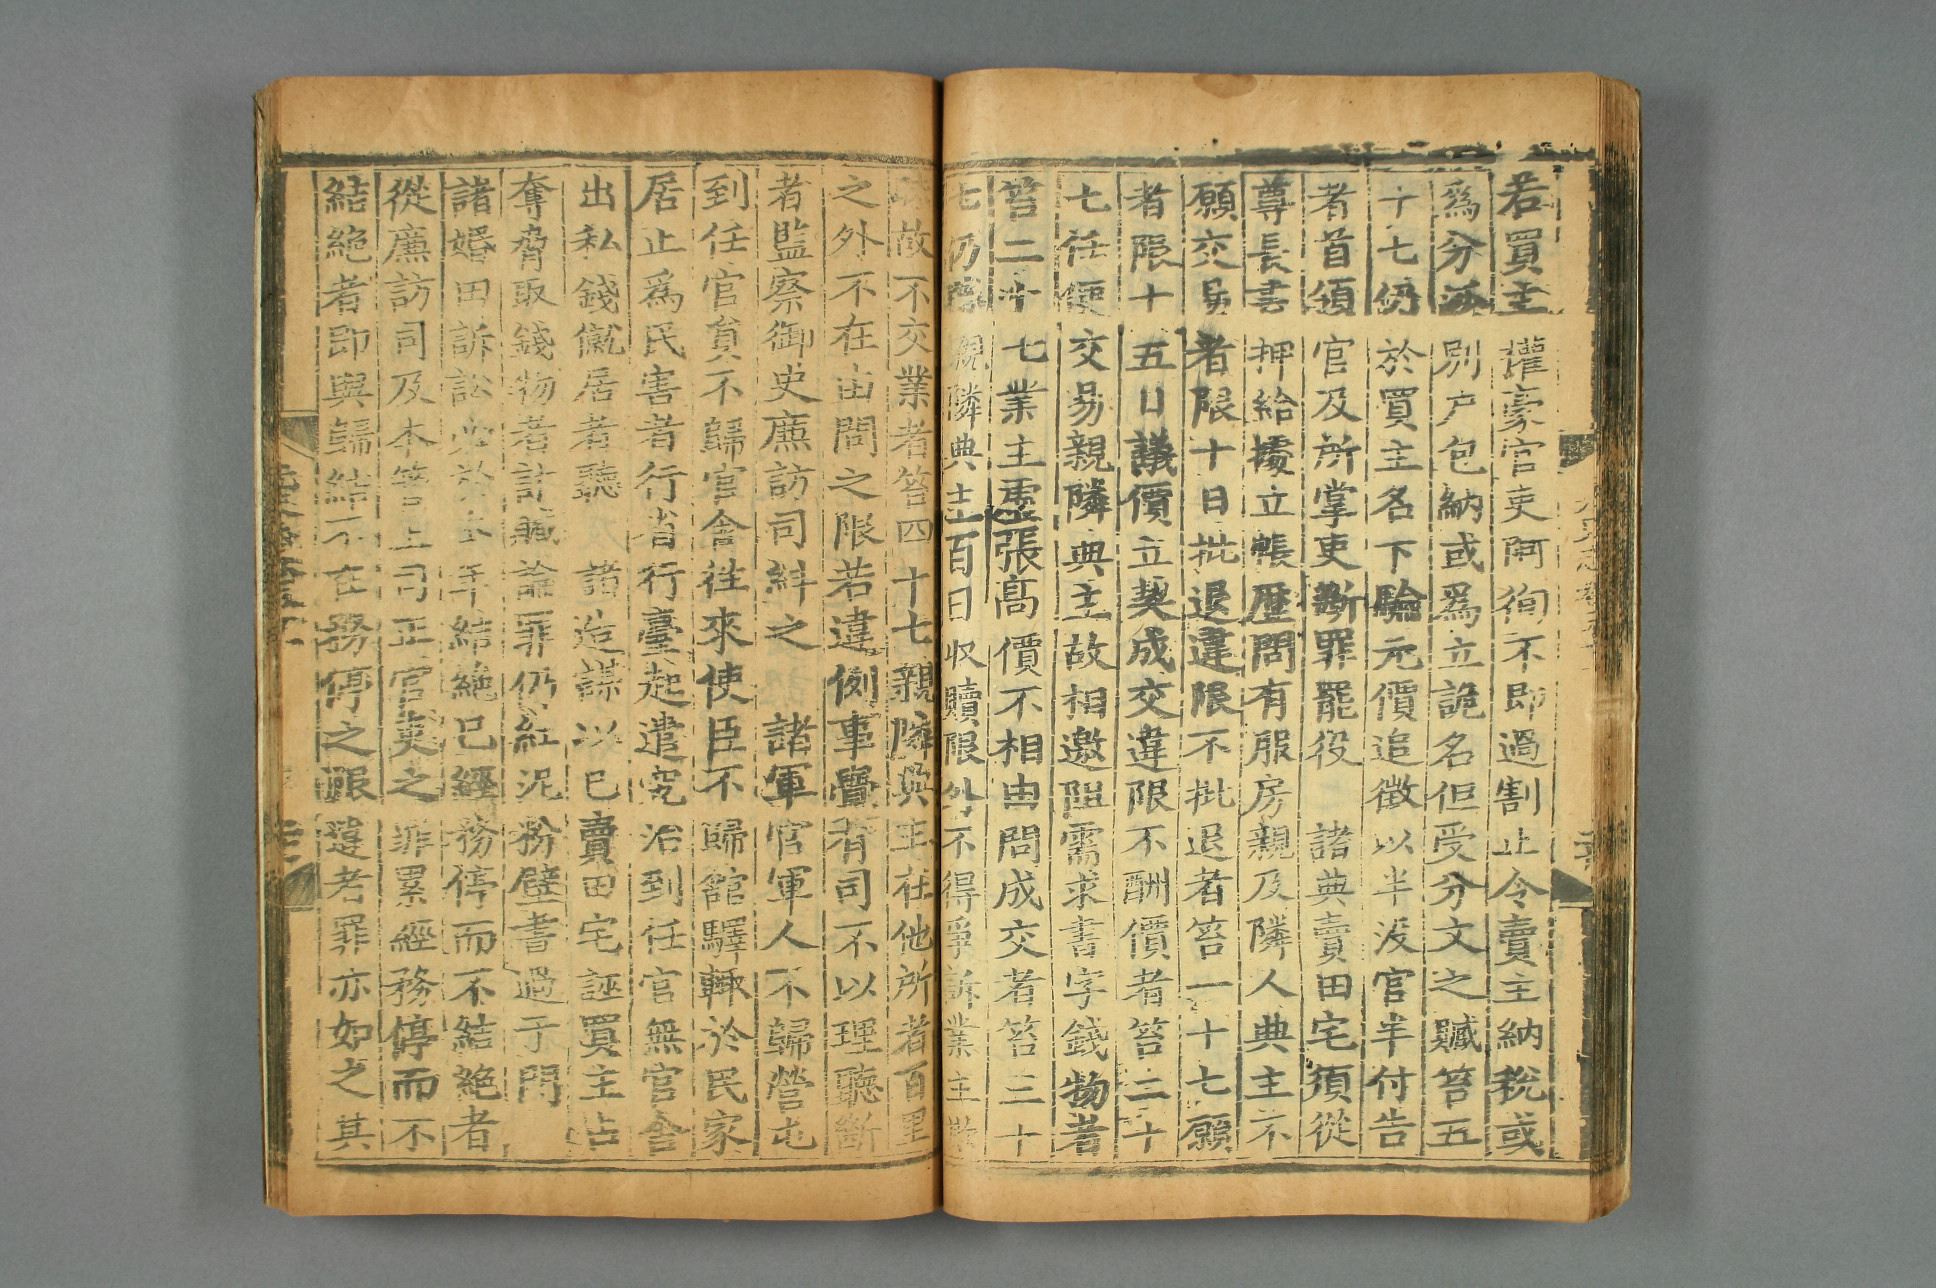 若買主權豪官吏阿徇不即過割止令賣主納稅或
爲分派別户包納或爲立詭名但受分文之贓笞五
十七仍於買主名下驗元價追徵以半沒官半付告
者首領官及所掌吏斷罪罷役 諸典賣田宅須從
尊長書押給據立帳歷問有服房親及隣人典主不
願交易者限十日批退違限不批退者笞一十七願
者限十五日議價立契成交違限不酬價者笞二十
七任便交易親隣典主故相邀阻需求書字錢物者
笞二十七業主虛張高價不相由問成交者笞三十
七仍聽親隣典主百日收贖限外不得爭訴業主欺
昧故不交業者笞四十七親隣典主在他所者百里
之外不在由問之限若違例事覺有司不以理聽斷
者監察御史廉訪司糾之 諸軍官軍人不歸營屯
到任官員不歸官舍往來使臣不歸館驛輙於民家
居止爲民害者行省行臺起遣究治到任官無官舍
出私錢僦居者聽 諸造謀以已賣田宅誣買主占
奪脅取錢物者計贓論罪仍紅泥粉壁書過于門
諸婚田訴訟必於本年結絕已經務停而不結絕者
從廉訪司及本管上司正官吏之罪累經務停而不
結絕者即與歸結不在務停之限違者罪亦如之其